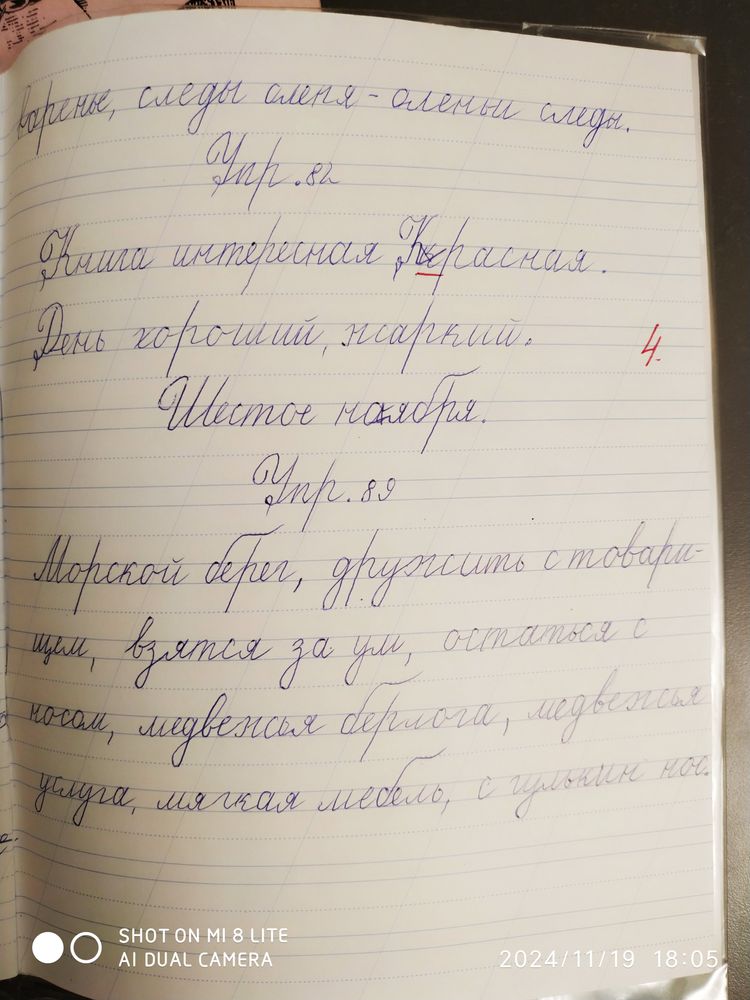 варенье, следы оленя - оленьи следы.
Упр. 82
Книга интересная, Красная.
День хороший, жаркий.
4.
Шестое ноября.
Упр. 89
Морской берег, дружить с товари-
щем, взятся за ум, остаться с
носом, медвежья берлога, медвежья
услуга, мягкая мебель, с гулькин нос.
SHOT ON MI 8 LITE
AI DUAL CAMERA
2024/11/19 18:05